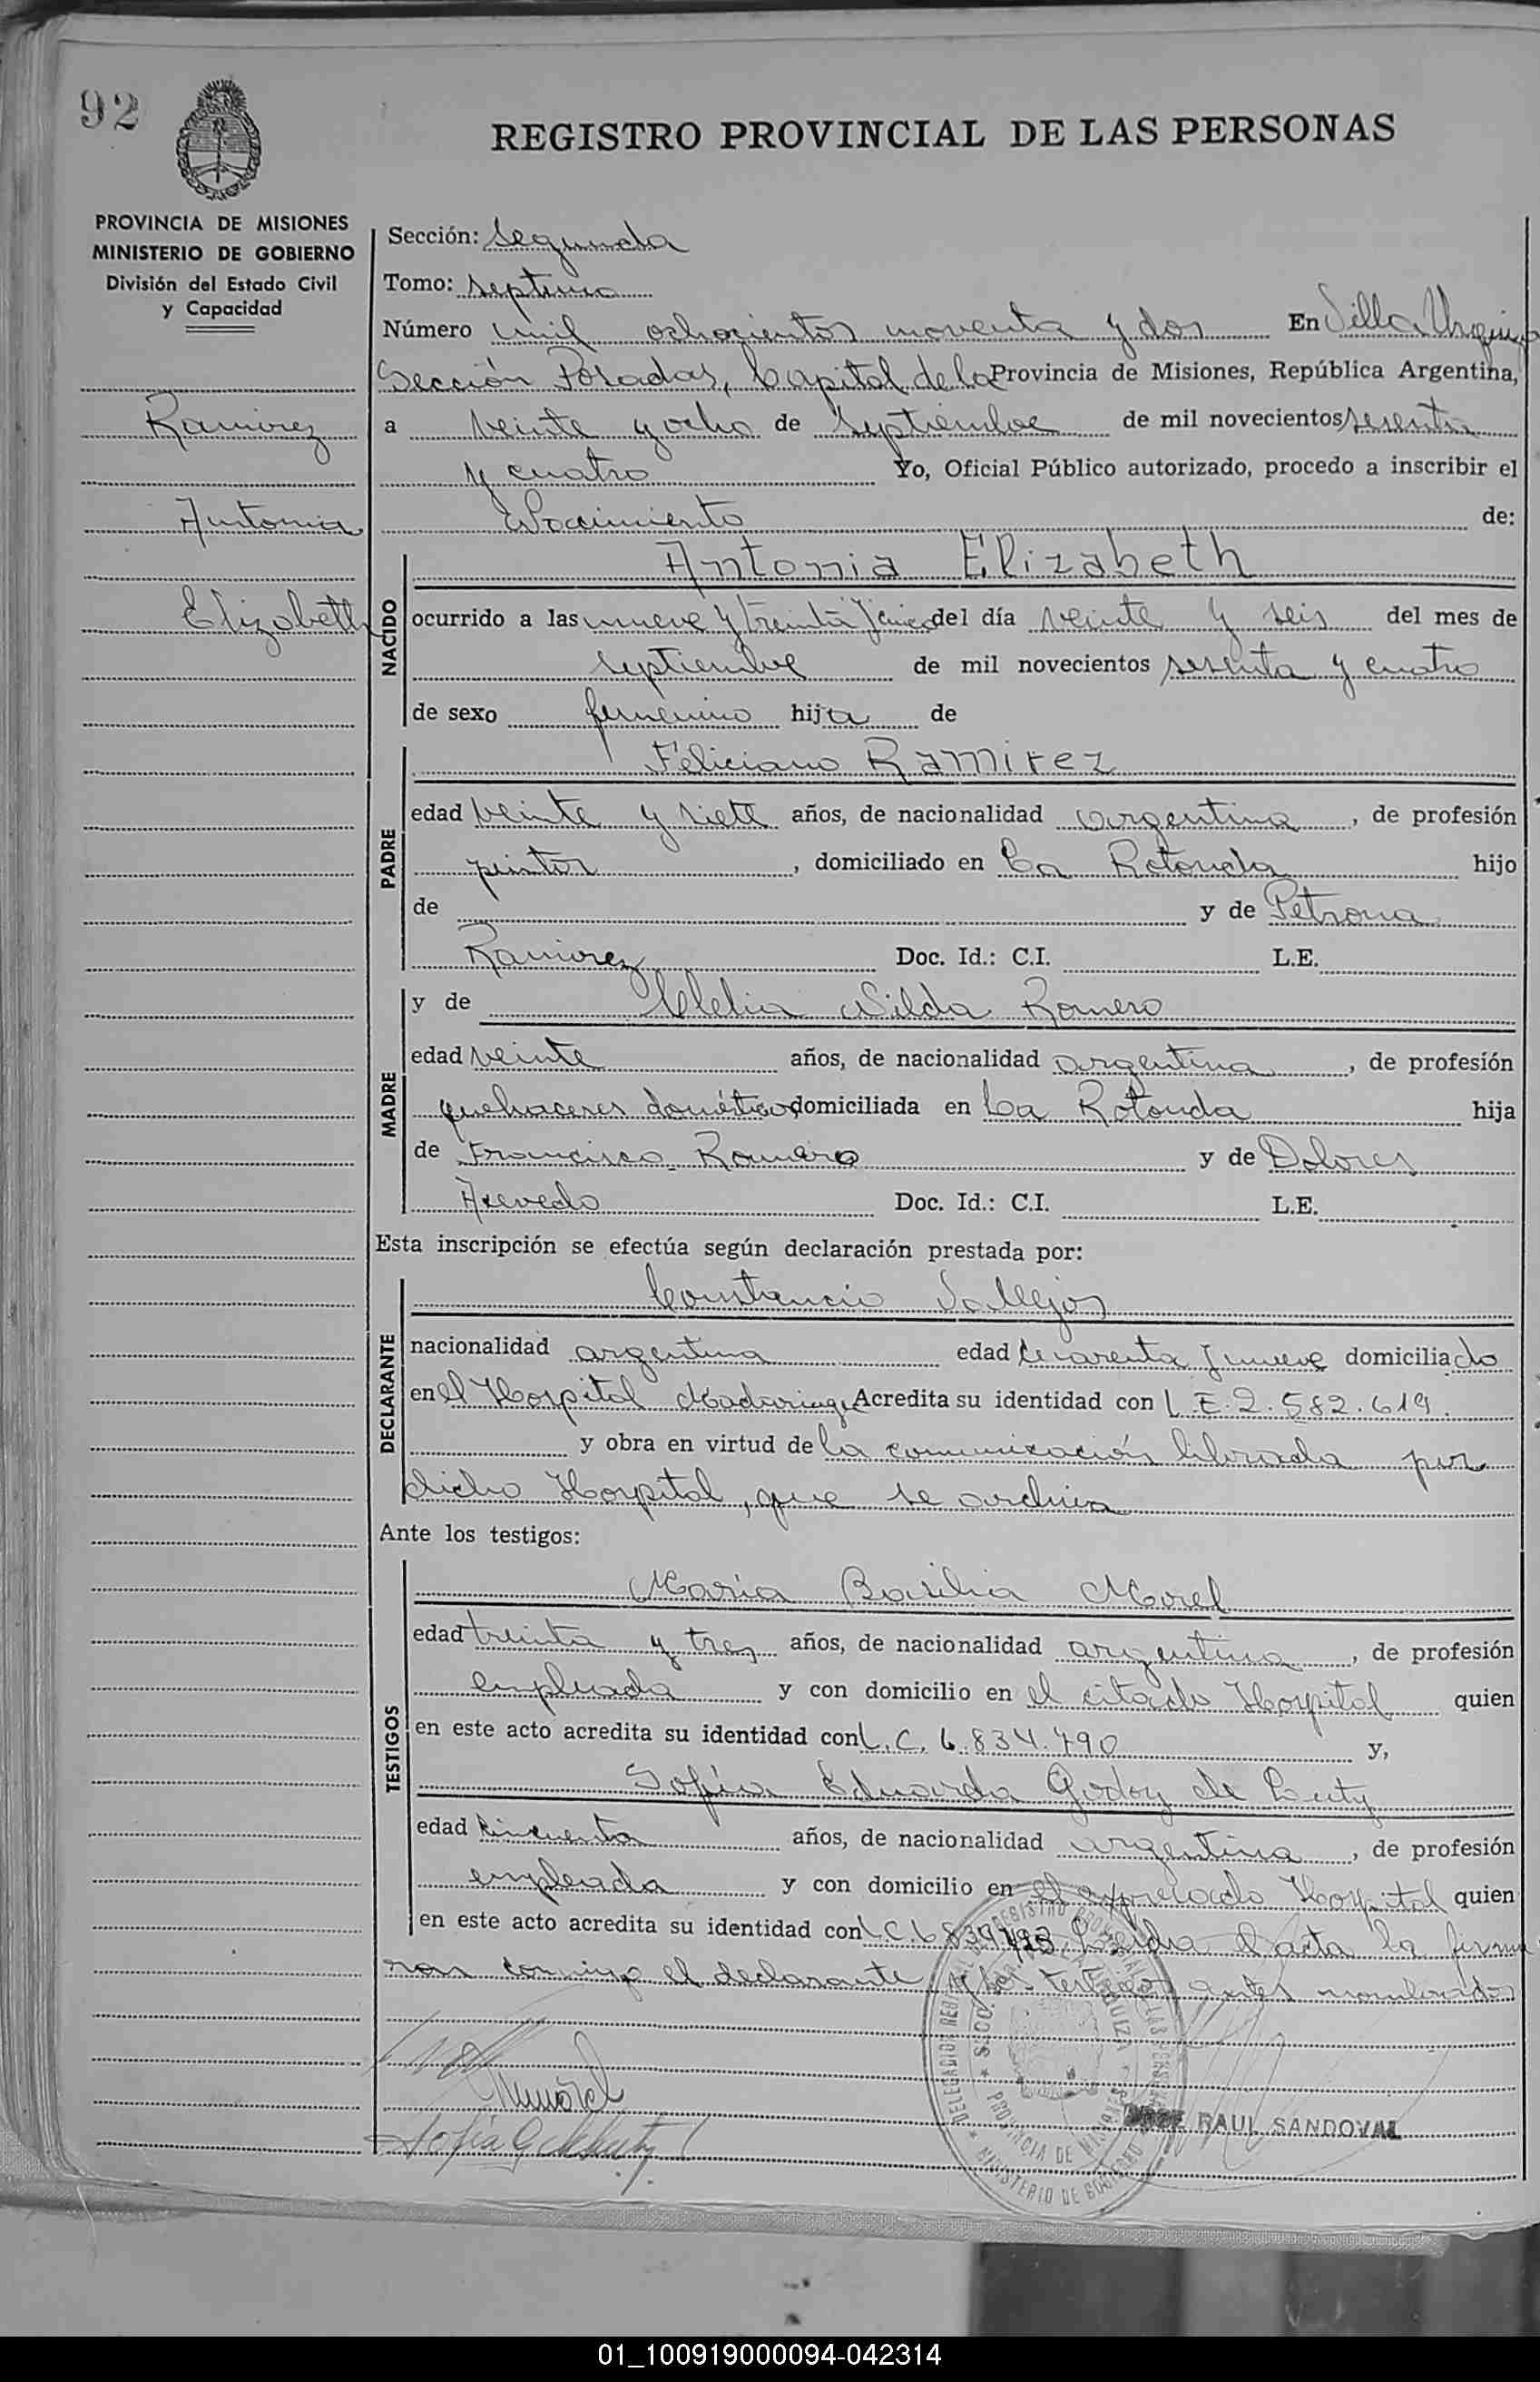 92
REGISTRO PROVINCIAL DE LAS PERSONAS
PROVINCIA DE MISIONES
MINISTERIO DE GOBIERNO
División del Estado Civil
y Capacidad
Sección: Segunda
Tomo: septimo
Número mil ochocientos noventa y dos En Villa Urquiza
Sección Posadas, Capital de la Provincia de Misiones, República Argentina,
Ramirez
a veinte y ocho de septiembre de mil novecientos sesenta
y cuatro Yo, Oficial Público autorizado, procedo a inscribir el
Antonia
Nacimiento de:
Elizabeth
NACIDO
Antonia Elizabeth
ocurrido a las nueve y treinta y cinco del día veinte y seis del mes de
septiembre de mil novecientos sesenta y cuatro
de sexo femenino hija de
PADRE
Feliciano Ramirez
edad veinte y siete años, de nacionalidad argentina, de profesión
pintor, domiciliado en La Rotonda hijo
de y de Petrona
Ramirez Doc. Id.: C.I. L.E.
MADRE
y de Clelia Nilda Romero
edad veinte años, de nacionalidad argentina, de profesión
quehaceres doméstico domiciliada en La Rotonda hija
de Francisco Romero y de Dolores
Acevedo Doc. Id.: C.I. L.E.
Esta inscripción se efectúa según declaración prestada por:
DECLARANTE
Constancio Vallejos
nacionalidad argentina edad cuarenta y nueve domiciliado
en el Hospital Madariaga Acredita su identidad con L.E. 2.582.619.
y obra en virtud de la comunicación librada por
dicho Hospital, que se archiva
Ante los testigos:
TESTIGOS
María Basilia Morel
edad treinta y tres años, de nacionalidad argentina, de profesión
empleada y con domicilio en el citado Hospital quien
en este acto acredita su identidad con L.C. 6.834.790 y,
Sofía Eduarda Godoy de Luty
edad cincuenta años, de nacionalidad argentina, de profesión
empleada y con domicilio en el expresado Hospital quien
en este acto acredita su identidad con L.C. Leída el acta la firma
ron conmigo el declarante y los testigos antes nombrados
MMorel
RAUL SANDOVAL
01_100919000094-042314